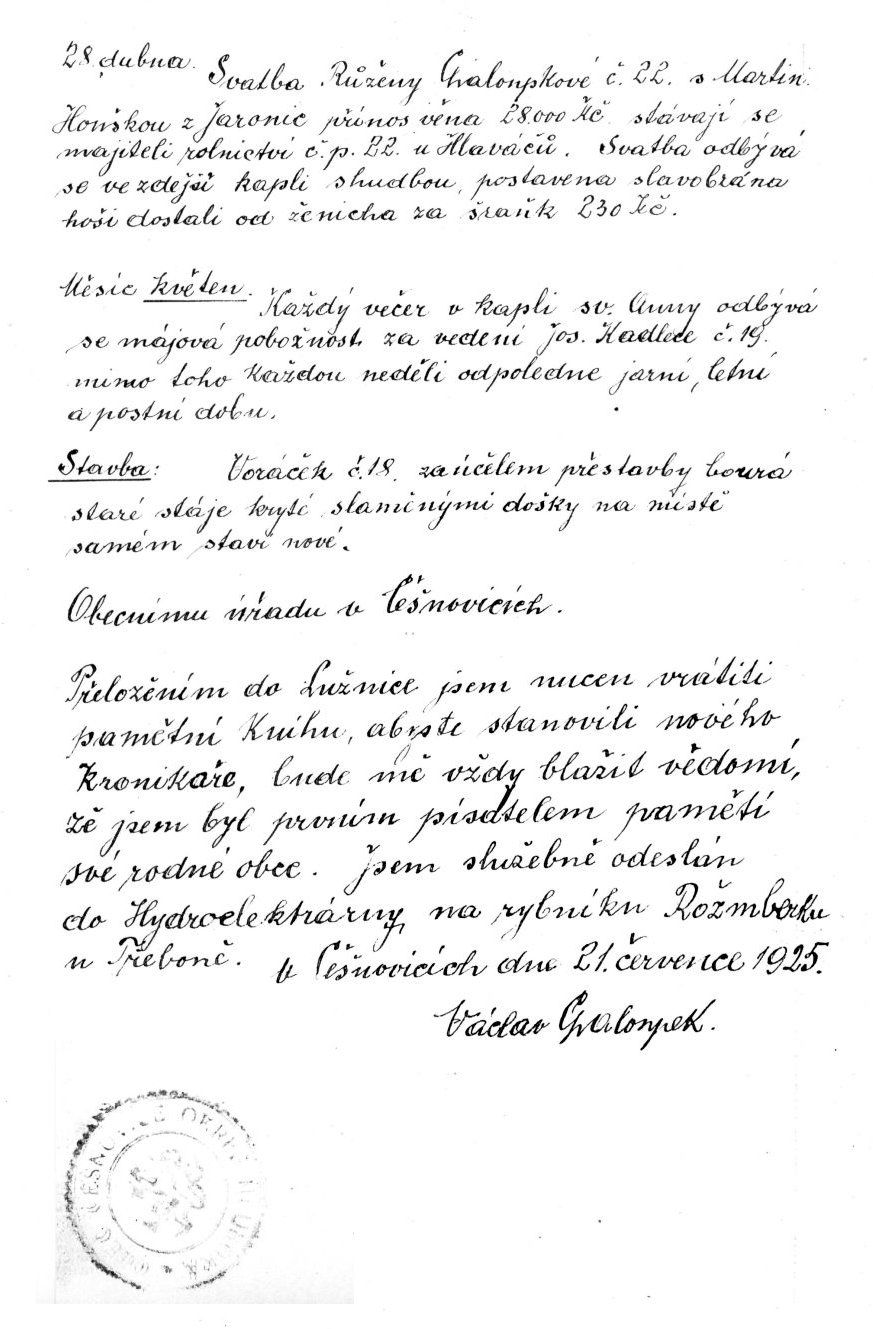 28. dubna. Svatba Růženy Chaloupkové č. 22. s Martin.
Houškou z Jaronic přínos věna 28.000 Kč stávají se
majiteli rolnictví č.p. 22. u Hlaváčů. Svatba odbývá
se ve zdejší kapli s hudbou, postavena slavobrána
hoši dostali od ženicha za šraňk 230 Kč.
Měsíc květen. Každý večer v kapli sv. Anny odbývá
se májová pobožnost za vedení Jos. Kadlece č. 19.
mimo toho každou neděli odpoledne jarní, letní
a postní dobu.
Stavba: Voráček č. 18. za účelem přestavby bourá
staré stáje kryté slaměnými došky na místě
samém staví nové.
Obecnímu úřadu v Češnovicích.
Přeložením do Lužnice jsem nucen vrátiti
pamětní knihu, abyste stanovili nového
kronikaře, bude mě vždy blažit vědomí,
že jsem byl prvním pisatelem pamětí
své rodné obce. Jsem služebně odeslán
do Hydroelektrárny na rybníku Rožmberku
u Třeboně. V Češnovicích dne 21. července 1925.
Václav Chaloupek.